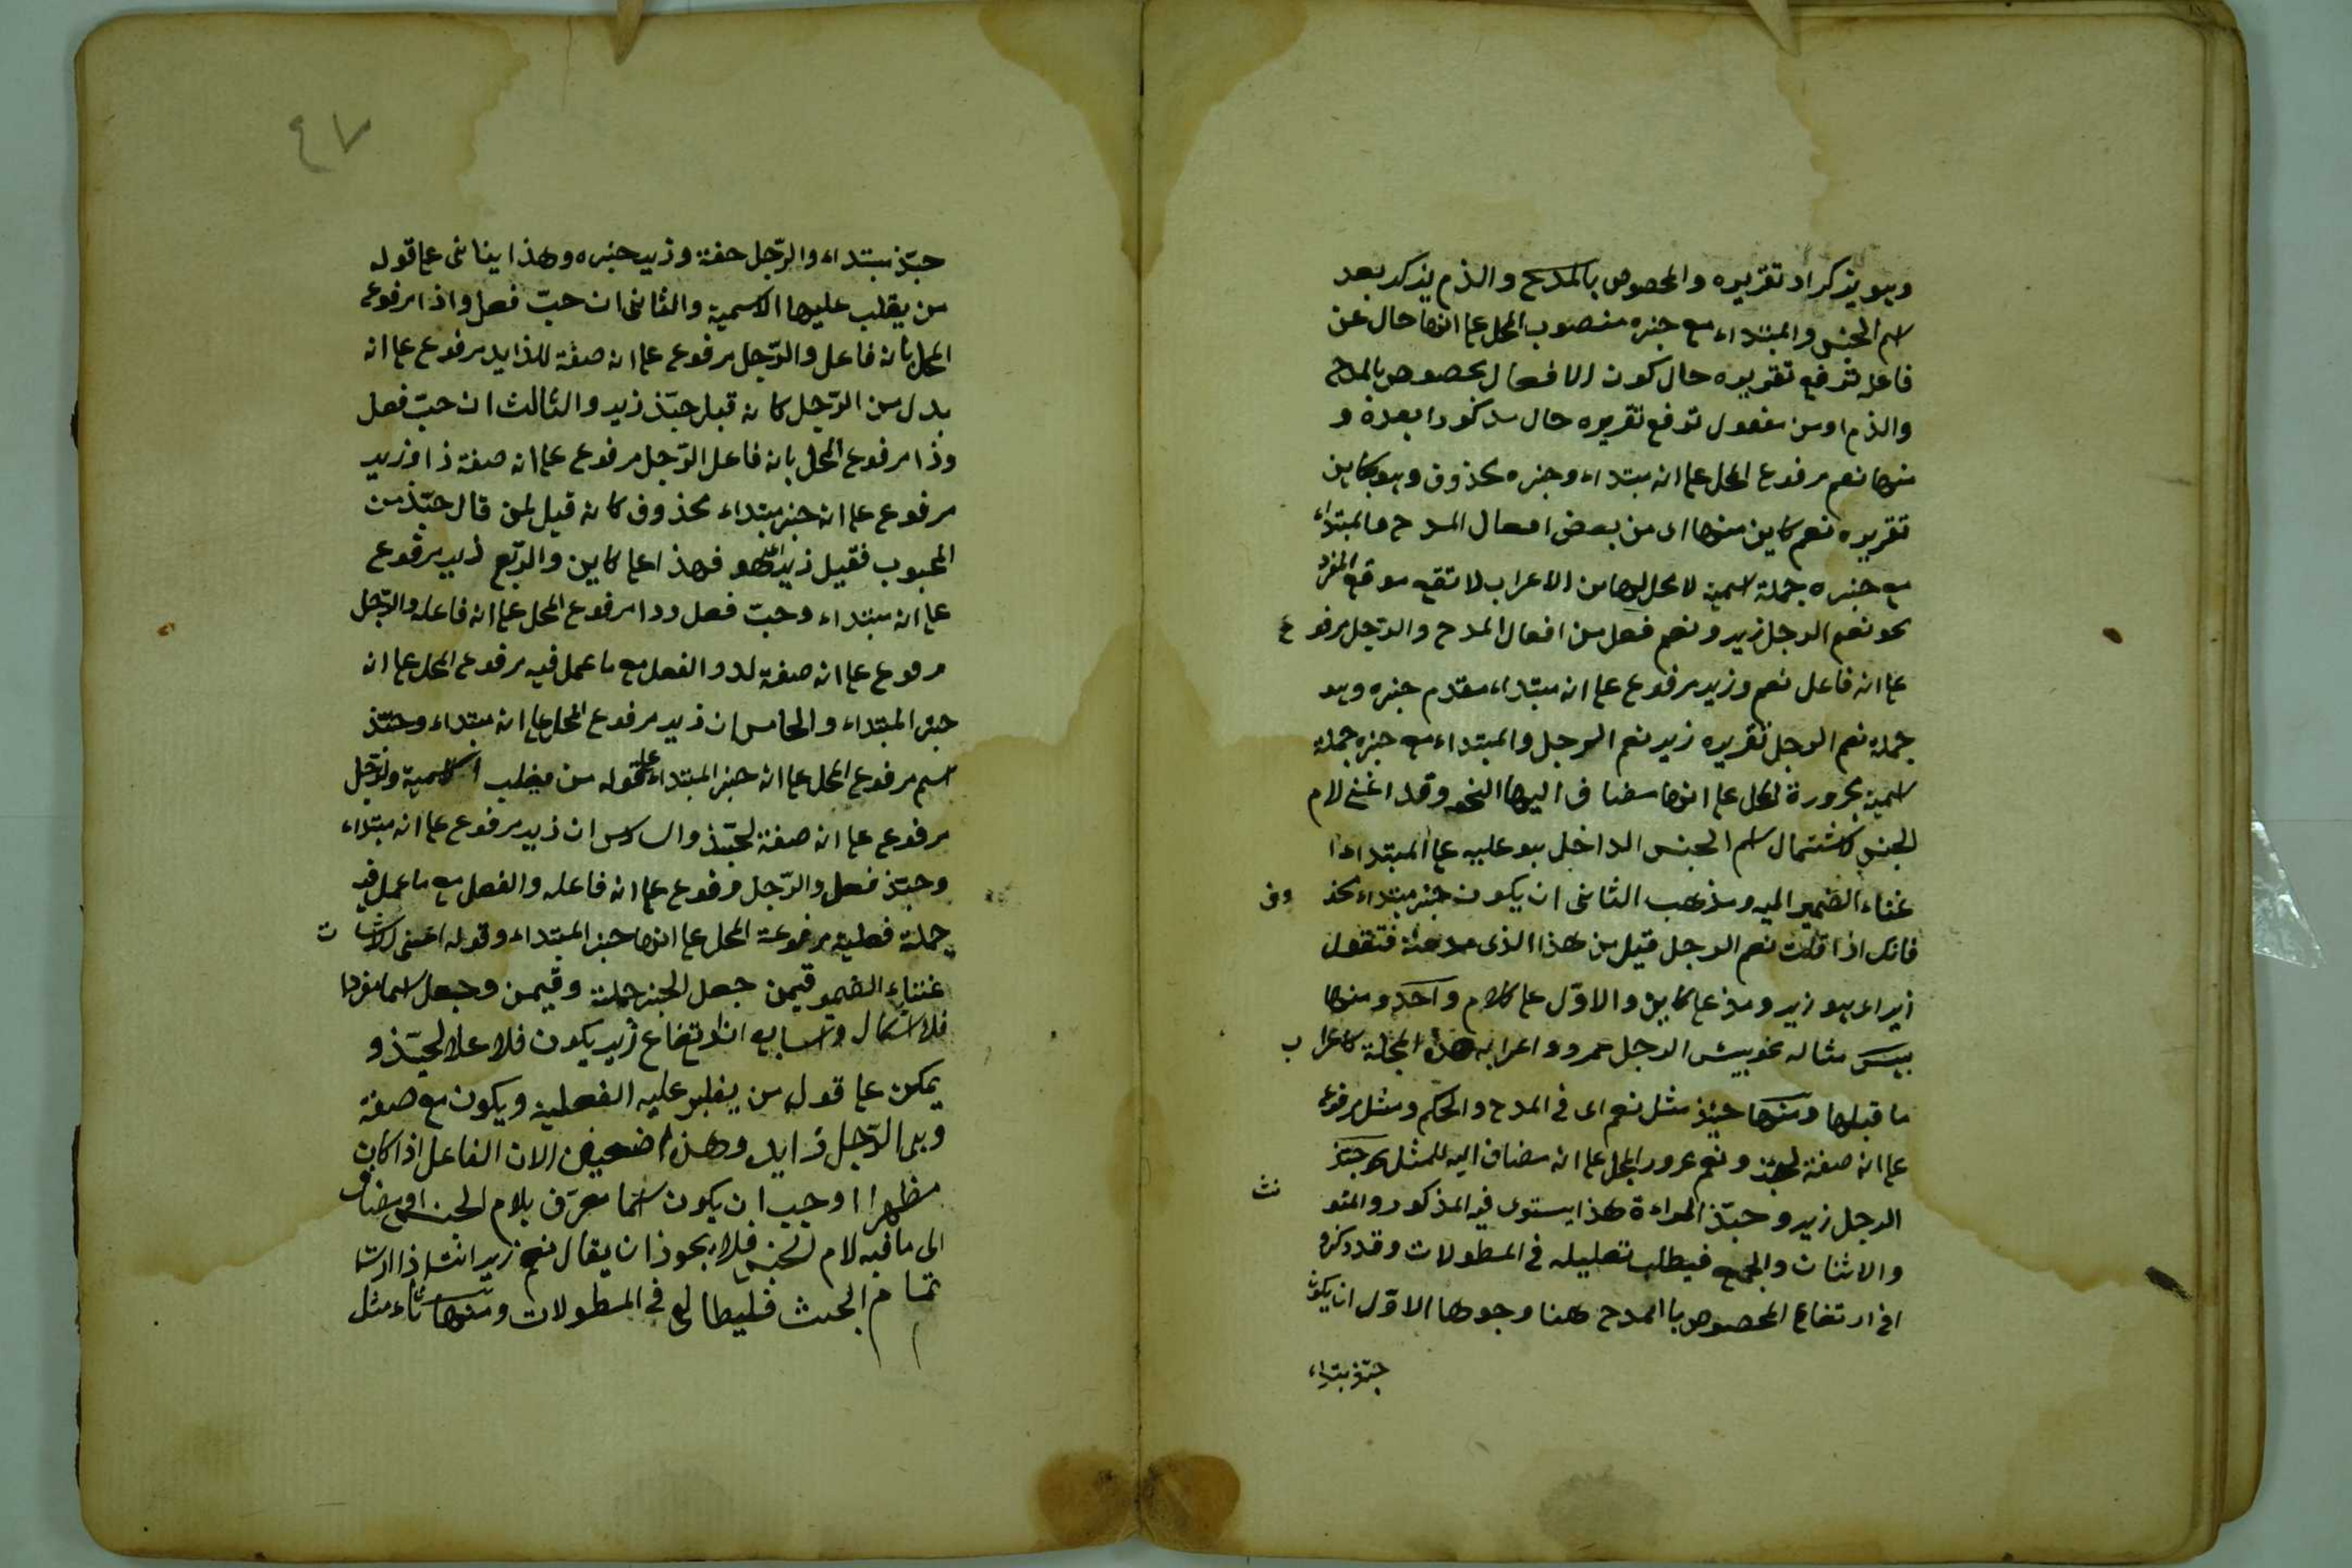 وهو يذكر او تقريره والمخصوص بالمدح والذم يذكر بعد
اسم الجنس والمبتداء مع خبره منصوب المحل على انها حال عن
فاعل ترفع تقريره حال كون الافعال مخصوص بالمدح
والذم او من مفعول ترفع تقريره حال مذكورا بعده و
منها نعم مرفوع المحل على انه مبتداء وخبره محذوف وهو كاين
تقريره نعم كاين منها اى من بعض افعال المدح والمبتداء
مع خبره جملة اسمية لا محل لها من الاعراب لا تقع موقع المفرد
نحو نعم الرجل زيد ونعم فعل من افعال المدح والرجل مرفوع
على انه فاعل نعم وزيد مرفوع على انه مبتداء مقدم خبره وهو
جملة نعم الرجل تقريره زيد نعم الرجل والمبتداء مع خبره جملة
اسمية مجرورة المحل على انها مضاف اليها النحو وقد اغنى لام
الجنس لاشتمال اسم الجنس الداخل هو عليه على المبتداء ا
غناء الضمير اليه ومذهب الثانى ان يكون خبر مبتداء محذوف
فانك اذا قلت نعم الرجل قيل من هذا الذى مدحته فتقول
زيد اى هو زيد على كلامين والاول على كلام واحد ومنها
بيس مثاله نحو بيس الرجل عمرو واعرابه هذه الجملة كاعراب
ما قبلها ومنها حبذ مثل نعم اى فى المدح والحكم ومثل مرفوع
على انه صفة لحبذ ونعم مجرور المحل على انه مضاف اليه للمثل نحو حبذ
الرجل زيد وحبذ المراءة هذا يستوى فيه المذكر والمؤنث
والاثنان والجمع فيطلب تعليله فى المطولات وقد ذكروا
فى ارتفاع المخصوص با المدح هنا وجوها الاول ان يكون
حبذ مبتداء
٤٧
حبذ مبتداء والرجل صفة وزيد خبره وهذا يتاتى على قول
من يغلب عليها الاسمية والثانى ان حب فعل وذا مرفوع
المحل بانه فاعل والرجل مرفوع على انه صفة للذا زيد مرفوع على انه
بدل من الرجل كانه قيل حبذ زيد والثالث ان حب فعل
وذا مرفوع المحل بانه فاعل الرجل مرفوع على انه صفة ذا وزيد
مرفوع على انه خبر مبتداء محذوف كانه قيل لمن قال حبذ من
المحبوب فقيل زيد اى هو فهذا على كلامين والرابع زيد مرفوع
على انه مبتداء وحب فعل وذا مرفوع المحل على انه فاعله والرجل
مرفوع على انه صفة لذا والفعل مع ما عمل فيه مرفوع المحل على انه
خبر المبتداء والخامس ان زيد مرفوع المحل على انه مبتداء وحبذ
اسم مرفوع المحل على انه خبر المبتداء على قوله من يغلب الاسمية والرجل
مرفوع على انه صفة لحبذ والسادس ان زيد مرفوع على انه مبتداء
وحبذ فعل والرجل مرفوع على انه فاعله والفعل مع ما عمل فيه
جملة فعلية مرفوعة المحل على انها خبر المبتداء وقوله اغنى
غناء الضمير فيمن جعل الخبر جملة وفيمن وجعل اسما مفردا
فلا اشكال والسابع ان ارتفاع زيد يكون فلاعلا لحبذ و
يمكن على قول من يغلب عليه الفعلية ويكون مع صفة
وهى الرجل زايد وهذا ضعيف لان الفاعل اذا كان
مظهرا اوجب ان يكون اسما معرف بلام الجنس او مضاف
الى ما فيه لام لجنس فلا يجوز ان يقال نعم زيد انشا اذا اردت
تمام البحث فليطالع فى المطولات ومنها ساء مثل